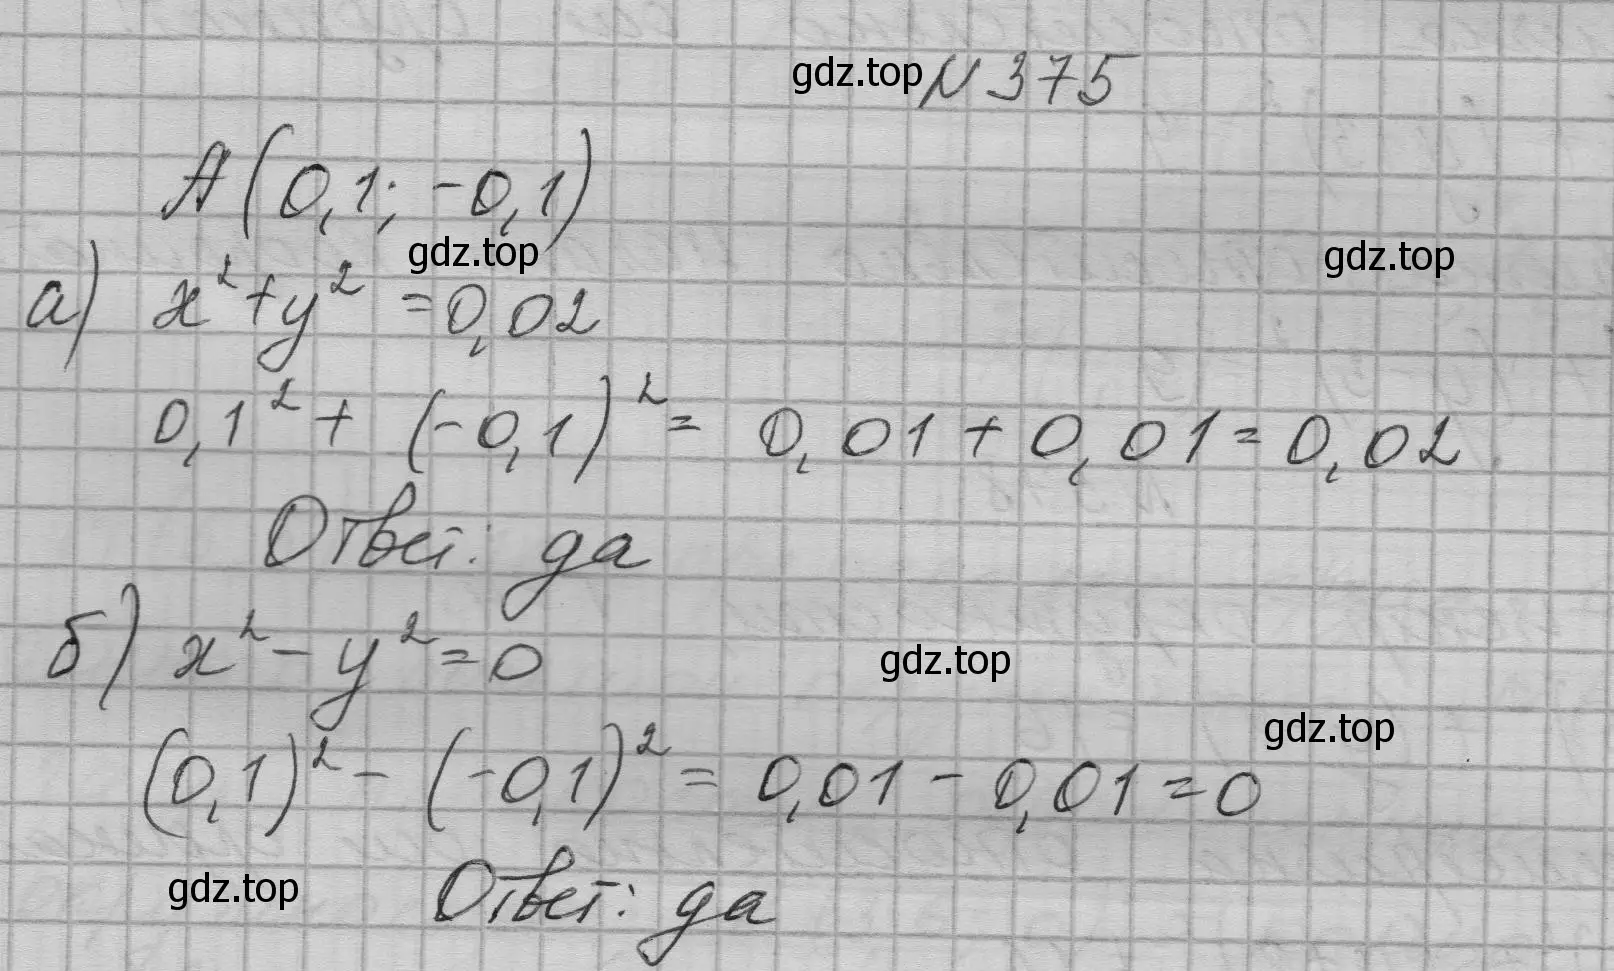 gdz.top N 375
A(0,1; -0,1)
gdz.top gdz.top
а) x²+y² =0,02
0,1² + (-0,1)² = 0,01 + 0,01 = 0,02
Ответ: да
б) x² - y² = 0
gdz.top
gdz.top
(0,1)² - (-0,1)² = 0,01 - 0,01 = 0
gdz.top
Ответ: да